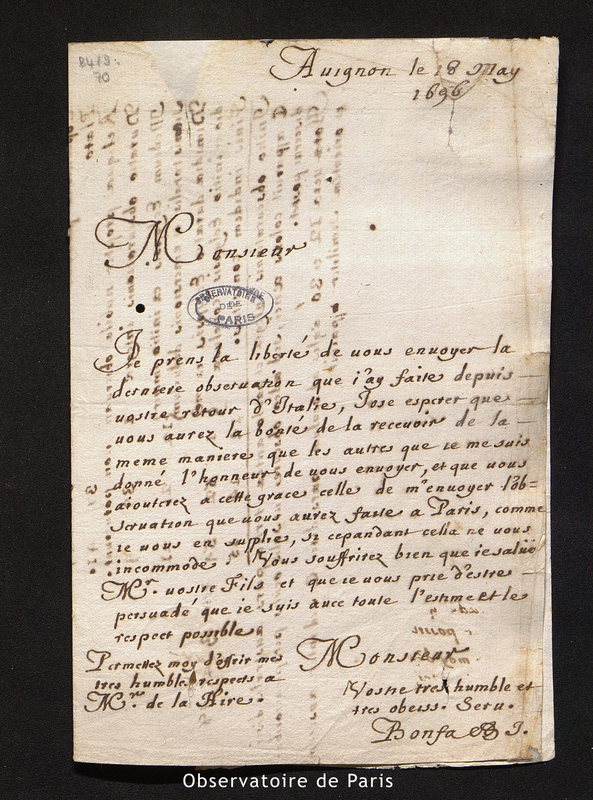 8419.
70
Auignon le 18 May
1696
Monsieur
OBSERVATOIRE
DE
PARIS
Je prens la liberté de uous enuoyer la
derniere obseruation que i'ay faite depuis
uostre retour d'Italie, J'ose esperer que
uous aurez la bonté de la receuoir de la
meme maniere que les autres que ie me suis
donné l'honneur de uous enuoyer, et que uous
aiouterez a cette grace celle de m'enuoyer l'ob=
seruation que uous aurez faite a Paris, comme
ie uous en suplie, si cepandant cella ne uous
incommode. Vous souffrirez bien que ie salüe
Mr. uostre Fils et que ie uous prie d'estre
persuadé que ie suis auec toute l'estime et le
respect possible
Permettez moy d'offrir mes
tres humbles respects a
Mr. de la Hire.
Monsieur
Vostre tres humble et
tres obeiss. Seru.
Bonfa J.
Observatoire de Paris